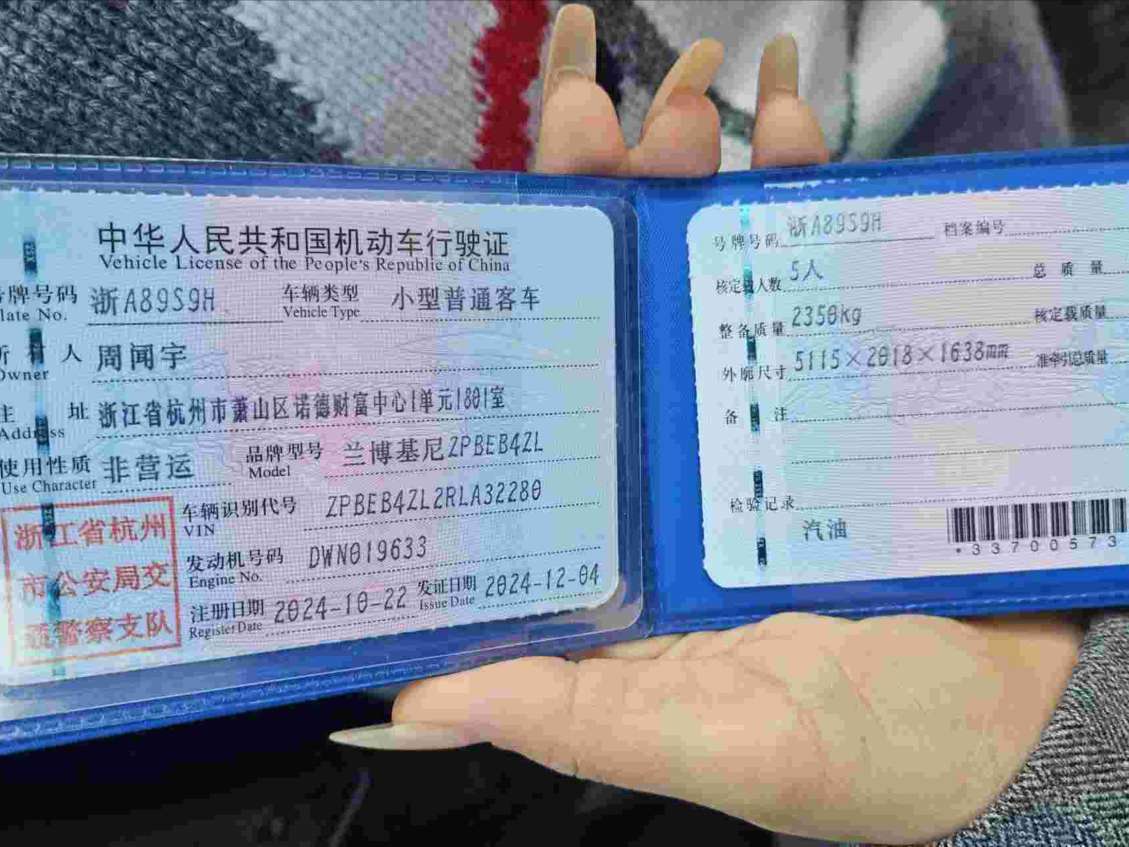 中华人民共和国机动车行驶证
Vehicle License of the People's Republic of China
号牌号码 浙A89S9H 车辆类型 小型普通客车
Plate No. Vehicle Type
所有人 周闻宇
Owner
住址 浙江省杭州市萧山区诺德财富中心1单元1801室
Address
使用性质 非营运 品牌型号 兰博基尼ZPBEB4ZL
Use Character Model
车辆识别代号 ZPBEB4ZL2RLA32280
VIN
发动机号码 DWN019633
Engine No.
注册日期 2024-10-22 发证日期 2024-12-04
Register Date Issue Date
浙江省杭州
市公安局交
通警察支队
号牌号码 浙A89S9H 档案编号
核定载人数 5人 总质量
整备质量 2350kg 核定载质量
外廓尺寸 5115×2018×1638mm 准牵引总质量
备注
检验记录
汽油
*33700573